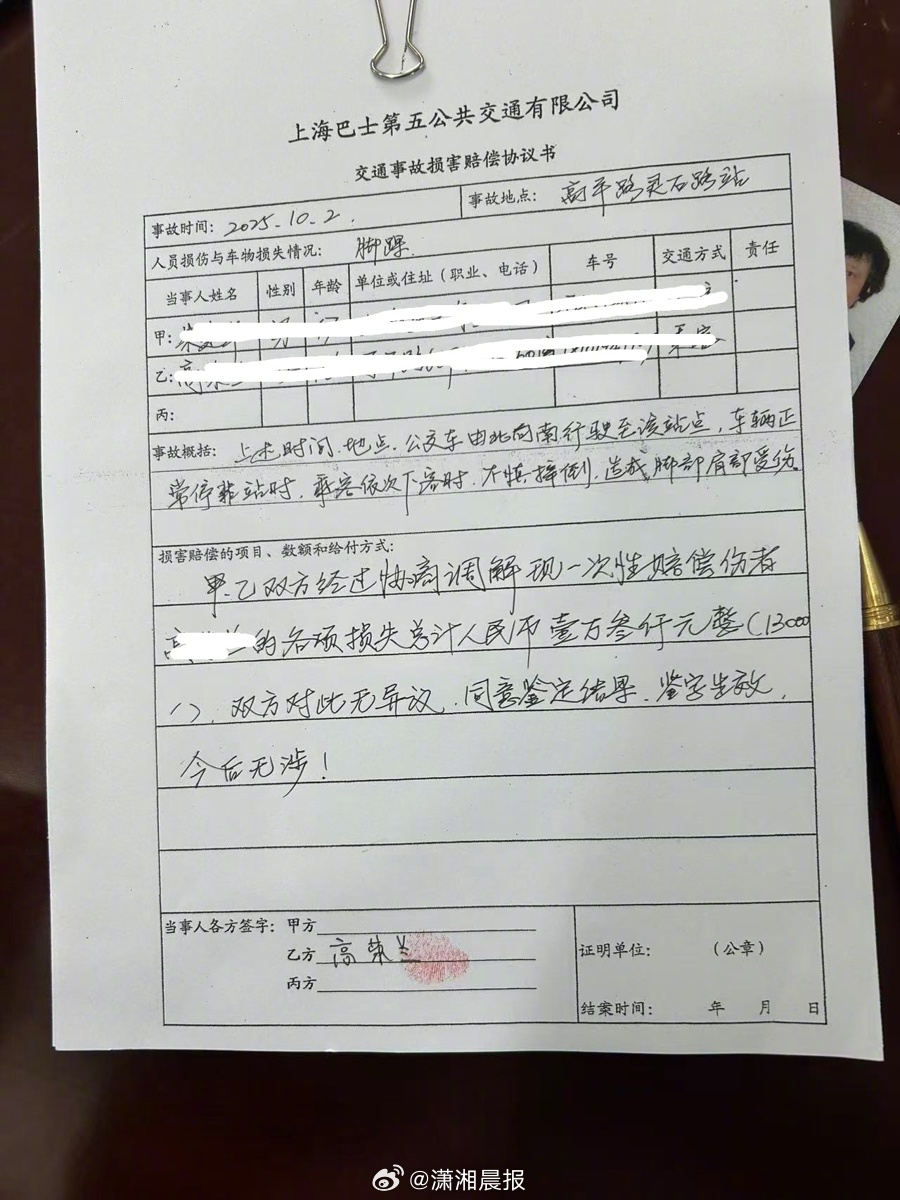 上海巴士第五公共交通有限公司
交通事故损害赔偿协议书
事故时间: 2025.10.2. 事故地点: 高平路灵石路站
人员损伤与车物损失情况: 脚踝
当事人姓名 性别 年龄 单位或住址（职业、电话） 车号 交通方式 责任
甲:
乙: 高 乘客
丙:
事故概括: 上述时间、地点、公交车由北向南行驶至该站点，车辆正
常停靠站时，乘客依次下客时，不慎摔倒，造成脚部肩部受伤
损害赔偿的项目、数额和给付方式:
甲、乙双方经过协商调解现一次性赔偿伤者
高 的各项损失总计人民币壹万叁仟元整（13000
），双方对此无异议，同意鉴定结果，签字生效，
今后无涉！
当事人各方签字: 甲方
乙方 高荣兰
丙方
证明单位: （公章）
结案时间: 年 月 日
@潇湘晨报